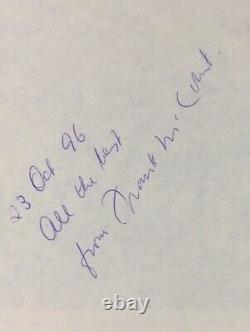 23 Oct. 96
All the best
from Frank McCourt.
ebay